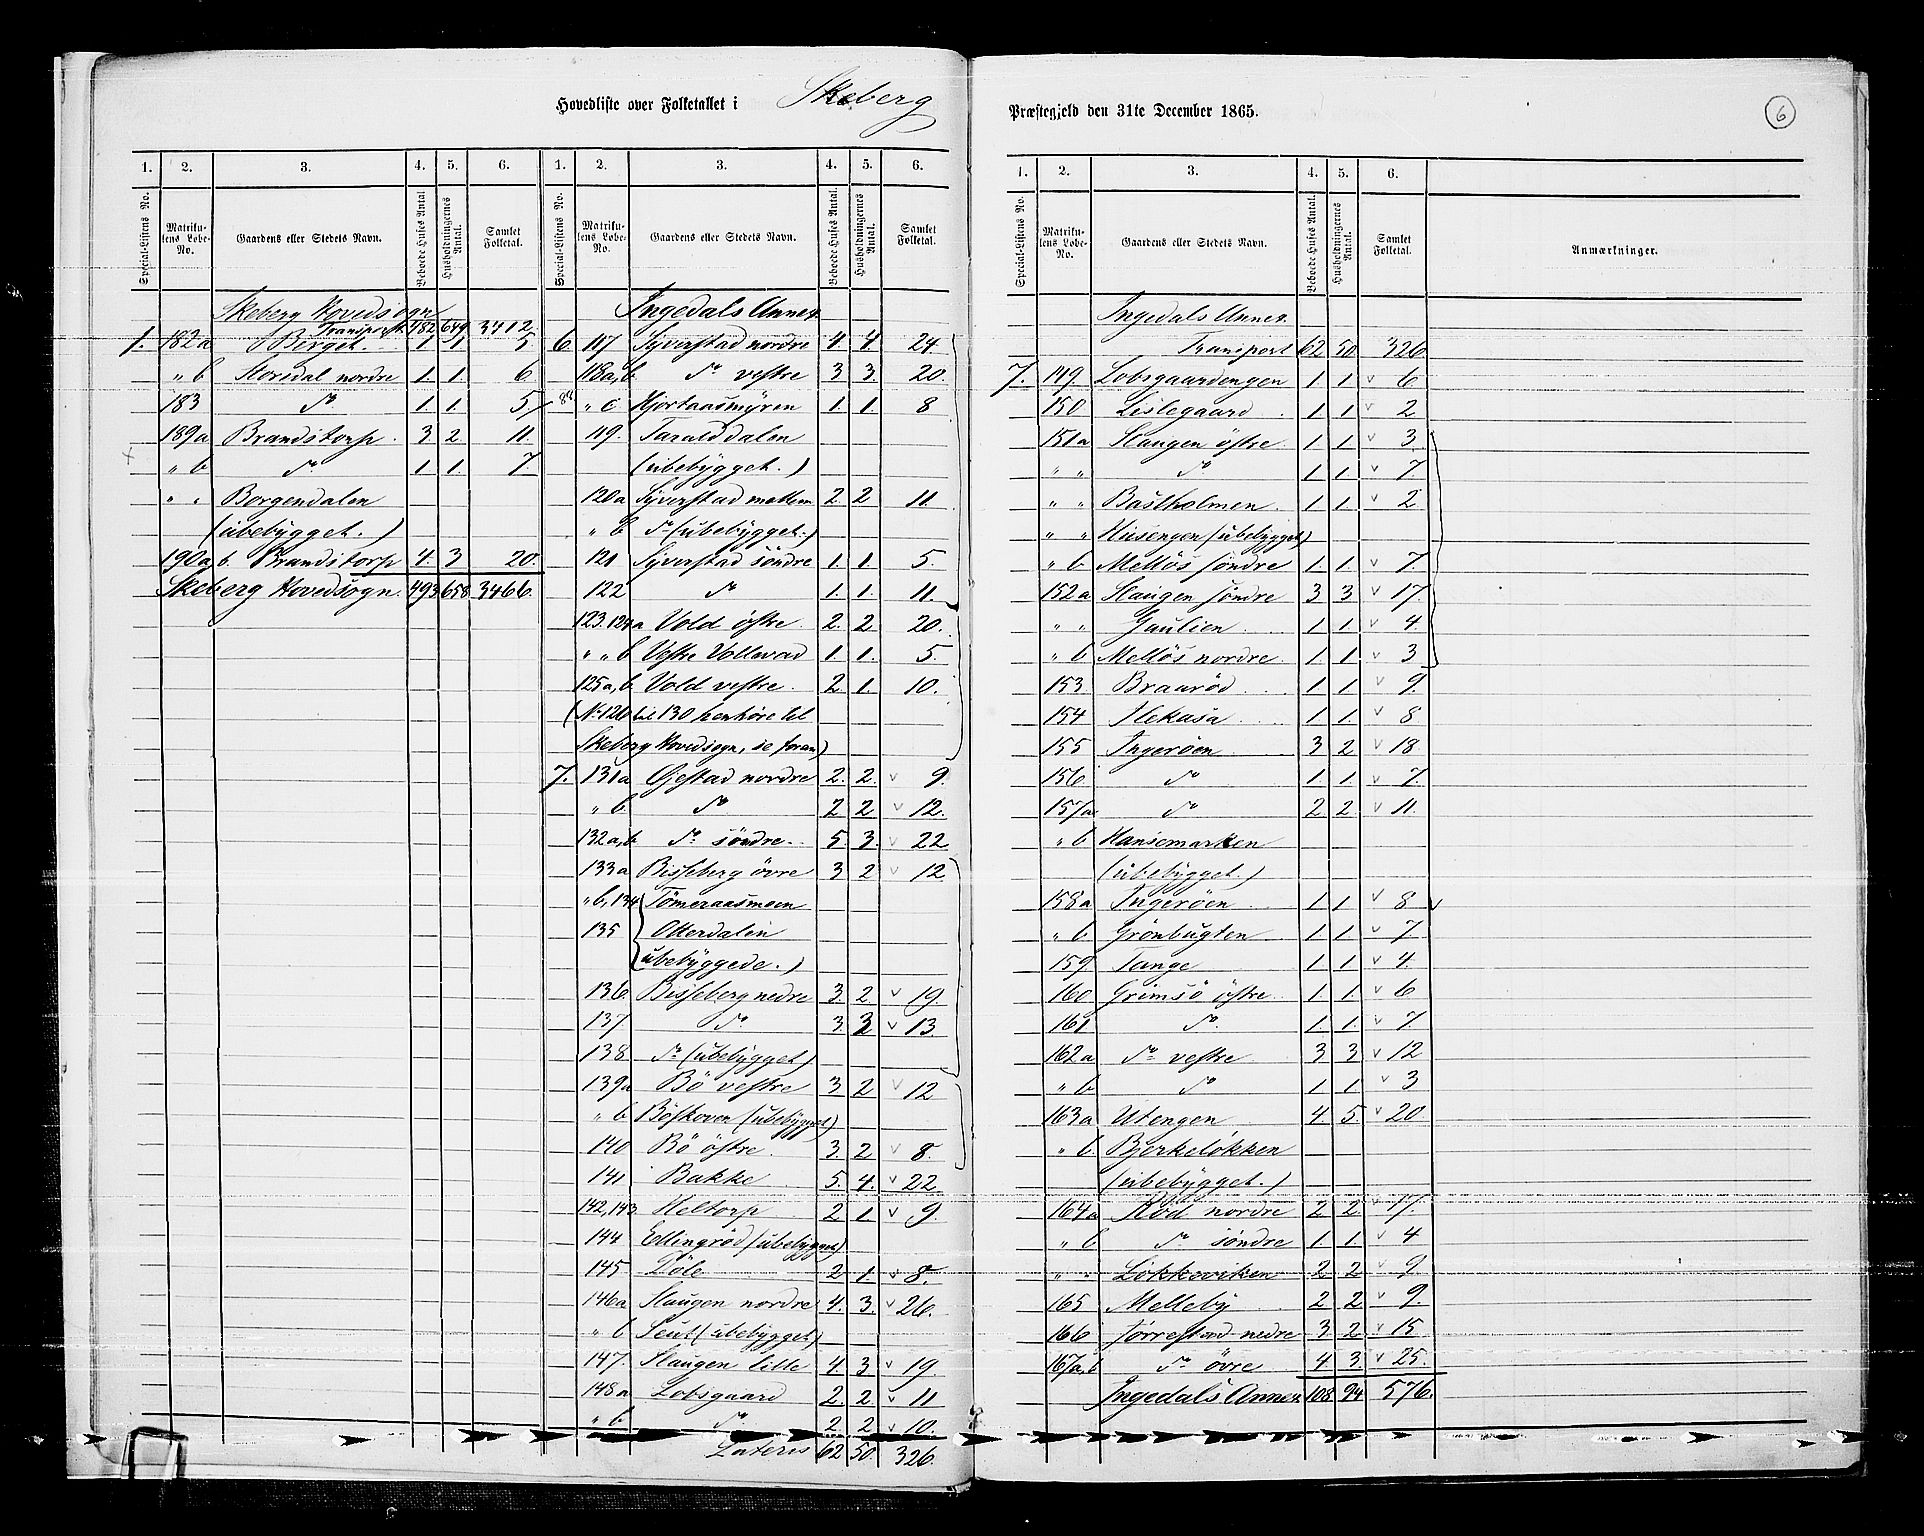 Hovedliste over Folketallet i Skeberg
Præstegjeld den 31te December 1865.
6
1. 2. 3. 4. 5. 6. 1. 2. 3. 4. 5. 6.
Special-Listens No. Matrikulens Løbe-No. Gaardens eller Stedets Navn. Beboede Huses Antal. Husholdningernes Antal. Samlet Folketal. Special-Listens No. Matrikulens Løbe-No. Gaardens eller Stedets Navn. Beboede Huses Antal. Husholdningernes Antal. Samlet Folketal.
Skeberg Hovedsogn
Transport 482 649 3412.
1. 182a Berget. 1 1 5.
" b Storedal nordre 1. 1. 6.
183 do 1. 1. 5.
189a Brandstorp. 3 2. 11.
" b do 1 1. 7.
" " Borgendalen
(ubebygget.)
190a, b. Brandstorp 4. 3 20.
Skeberg Hovedsogn. 493 658 3466.
Ingedals Annex.
6 117 Syverstad nordre 4. 4. 24.
118a, b do vestre 3 3. 20.
" c Hjortaasmyren 1. 1. 8
119. Taralddalen
(ubebygget.)
120a Syverstad mellem 2. 2 11.
" b do (ubebygget.)
121 Syverstad söndre 1. 1. 5.
122 do 1. 1. 11.
123. 124a Vold östre. 2. 2 20.
" " b Vestre Vollevad 1. 1. 5.
125a, b Vold vestre. 2 1. 10.
(No 126 til 130 henhøre til
Skeberg Hovedsogn, se foran)
7. 131a Gjestad nordre 2. 2. 9.
" b. do 2 2 12.
132a, b do söndre. 5. 3. 22
133a Bisseberg övre 3 2 12
" b, 134 Tömeraasmoen
135 Otterdalen
ubebyggede.)
136. Bisseberg nedre 3. 2 19.
137 do 3. 3 13.
138. do (ubebygget)
139a Bö vestre 3 2 12
" b Böskoven (ubebygget)
140 Bö östre. 3. 2 8.
141 Bakke 5. 4. 22
142, 143 Heltorp 2 1. 9.
144 Edlingröd (ubebygget)
145. Döle 2 1. 8.
146a Haugen nordre 4. 3. 26.
" b Leut (ubebygget)
147. Haugen lille 4. 3 19.
148a Lobsgaard 2. 2. 11
" b. do 2 2 10.
Lateris 62 50. 326.
1. 2. 3. 4. 5. 6.
Special-Listens No. Matrikulens Løbe-No. Gaardens eller Stedets Navn. Beboede Huses Antal. Husholdningernes Antal. Samlet Folketal. Anmærkninger.
Ingedals Annex.
Transport 62 50 326
7. 149. Lobsgaardengen 1. 1. 6
150 Lislegaard 1. 1 2
151a Haugen östre. 1 1 3.
" " do 1 1. 7
" " Bastholmen. 1. 1. 2
" " Husengen (ubebygget)
" b Mellös söndre 1. 1. 7.
152a Haugen söndre 3 3 17.
" " Gaulien 1. 1. 4.
" b Mellös nordre. 1. 1 3
153. Braaröd 1. 1 9.
154 Ilekasa 1. 1. 8
155 Ingeröen 3 2 18.
156. do 1. 1. 7.
157a do 2 2. 11.
" b Hansemarken
(ubebygget.)
158a Ingeröen 1 1. 8
" b. Grönbugten 1. 1. 7
159 Tange 1. 1 4.
160 Grimsö östre. 1. 1. 6
161 do 1. 1. 7.
162a do vestre 3 3 12
" b do 1. 1. 3
163a Utengen 4. 5. 20
" b. Bjerkelökken
(ubebygget.)
164a Röd nordre 2 2 17.
" b do söndre 1. 1. 4
" " Lökkeviken 2 2 9.
165 Melleby 2 2 9.
166 Torrestad nedre 3 2 15
167a, b do övre 4 3. 25.
Ingedals Annex. 108 94 576.